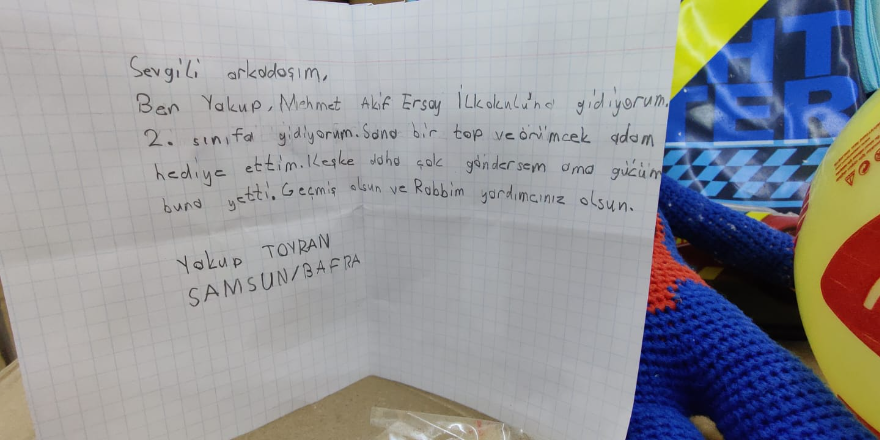 Sevgili arkadaşım,
Ben Yakup, Mehmet Akif Ersoy İlkokulu'na gidiyorum.
2. sınıfa gidiyorum. Sana bir top ve örümcek adam
hediye ettim. Keşke daha çok göndersem ama gücüm
buna yetti. Geçmiş olsun ve Rabbim yardımcınız olsun.
Yakup TOYRAN
SAMSUN/BAFRA
HT
TER